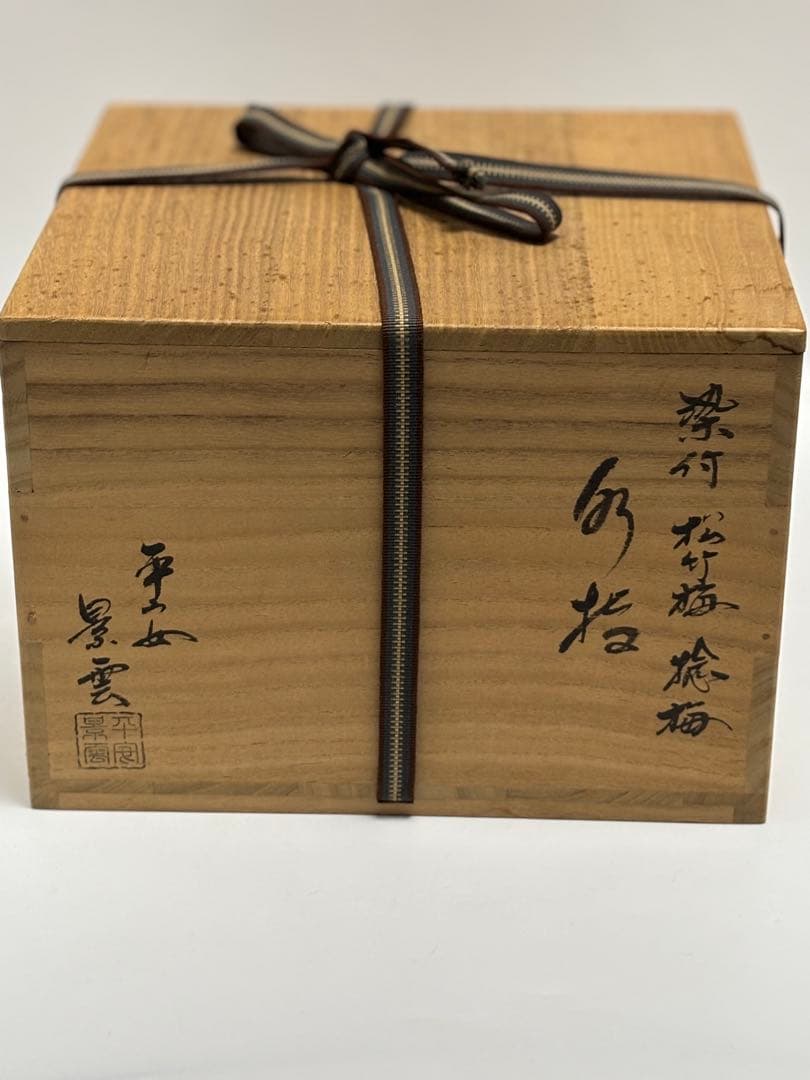 染付 松竹梅 捻梅
水指
平安
景雲
平安
景雲